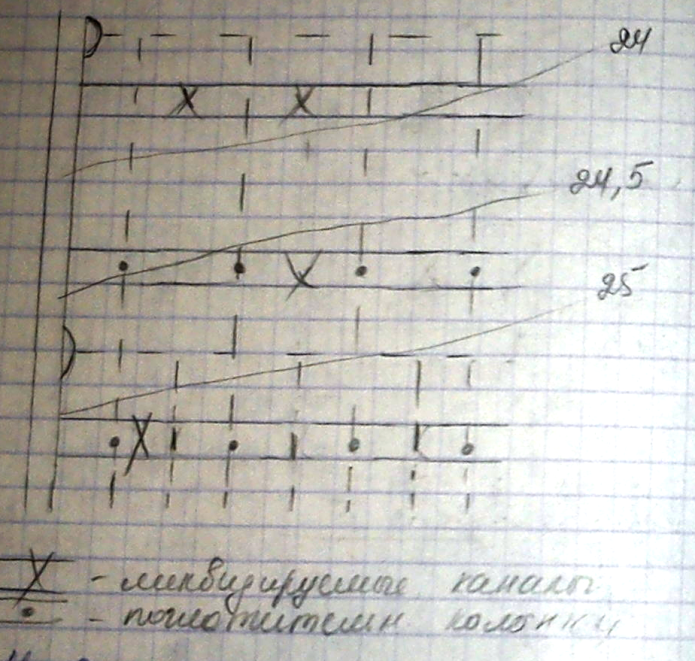 24
24,5
25
- ликвидируемые каналы
- поглотители колонки